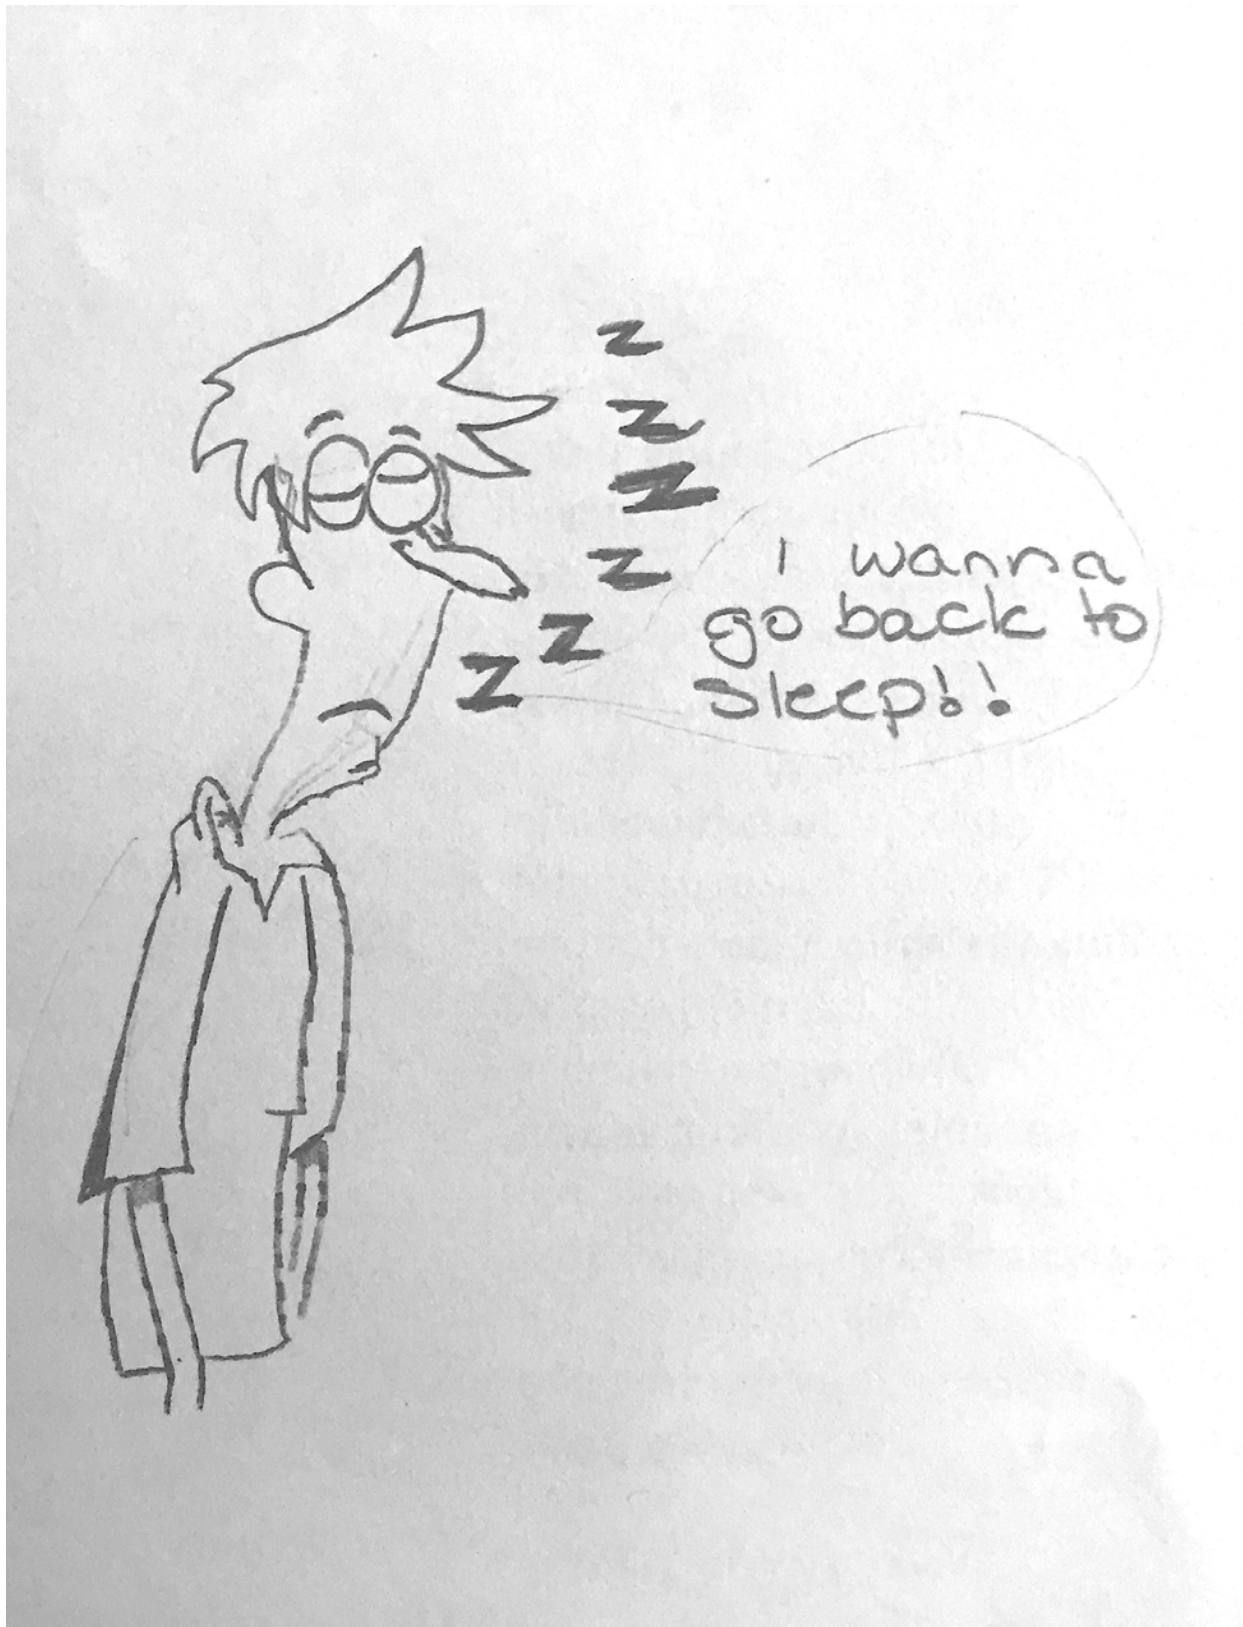 z
z
z
z
z
z
I wanna
go back to
sleep!!